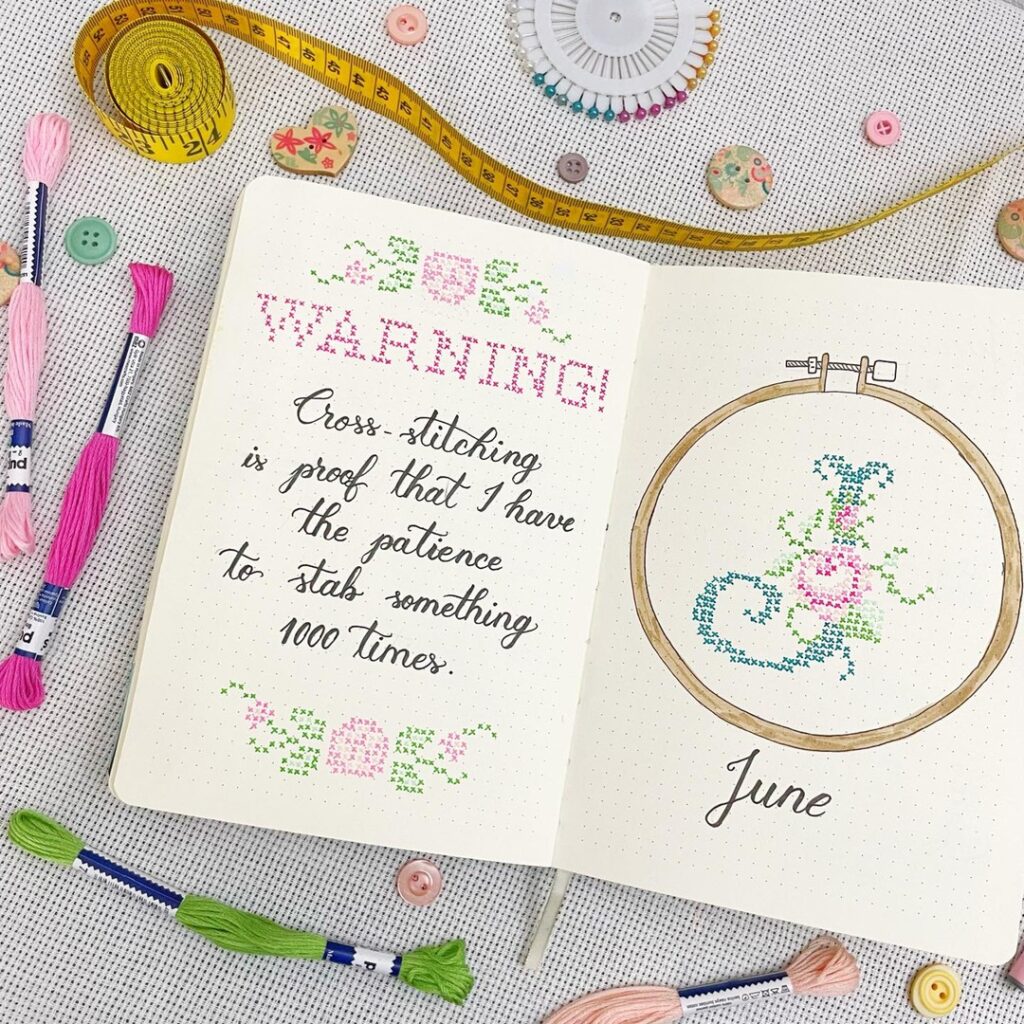 WARNING!
Cross-stitching
is proof that I have
the patience
to stab something
1000 times.
J
June